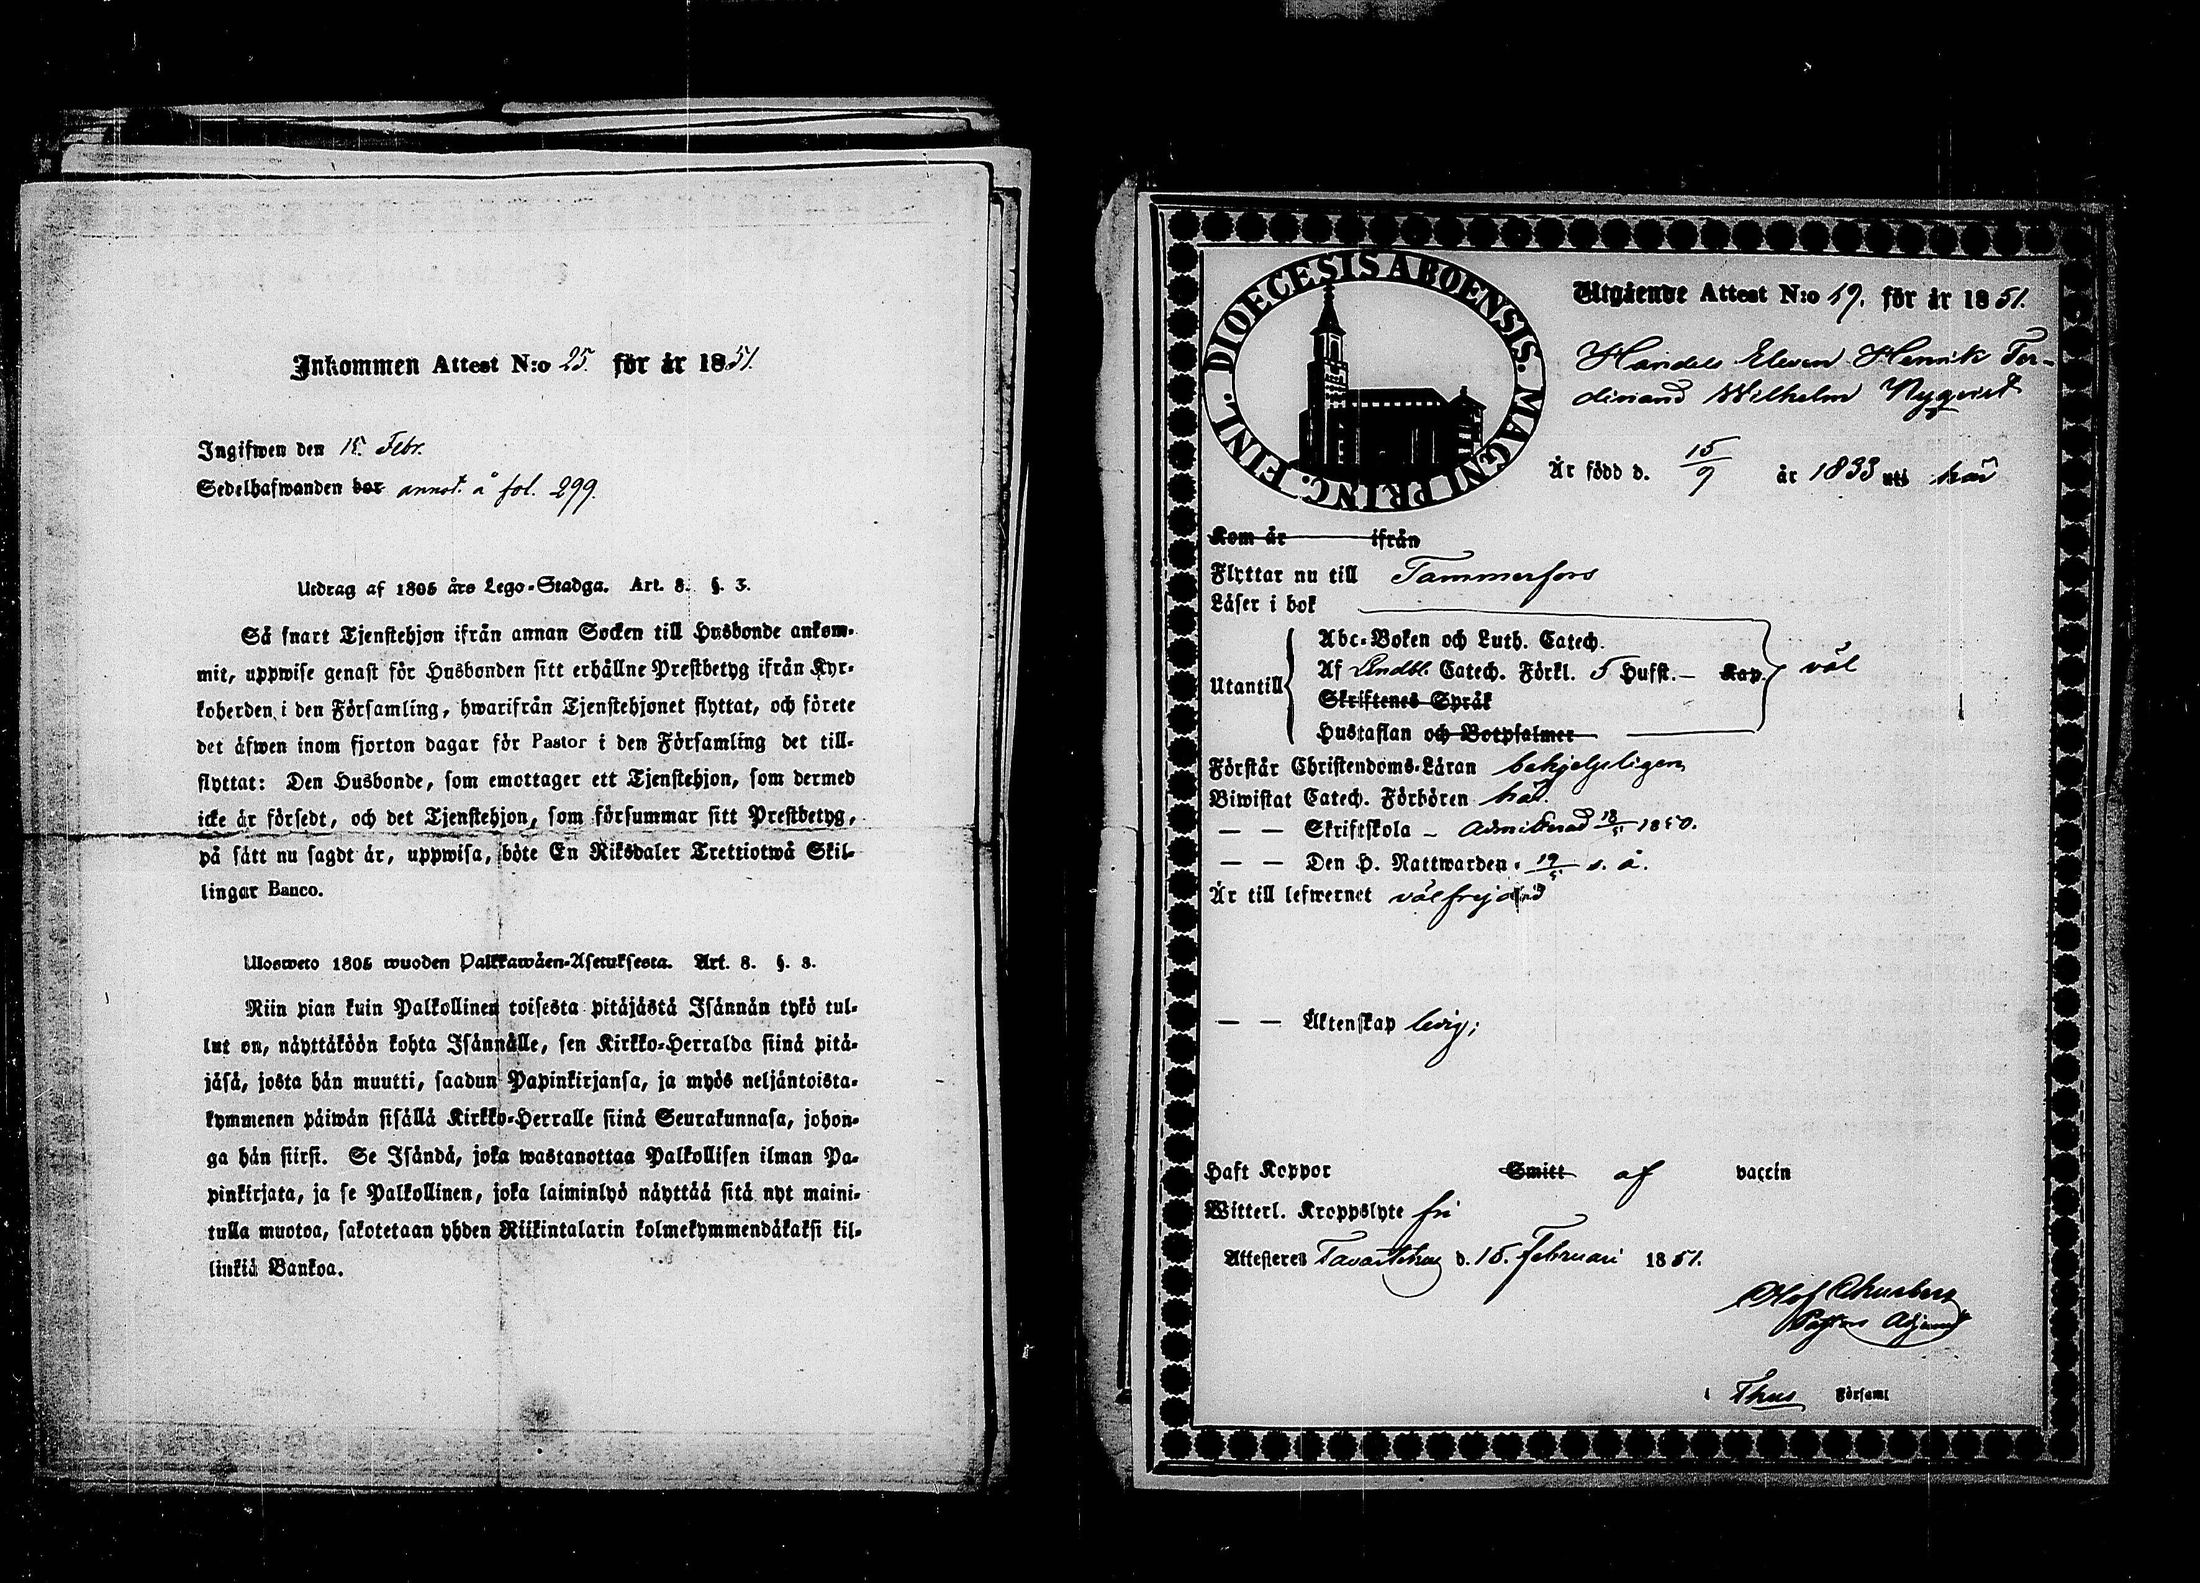 Inkommen Attest N:o 25. för år 1851.
Ingifwen den 15. Febr.
Sedelhafwanden bor annot. å fol. 299.
Utdrag af 1805 års Lego-Stadga. Art. 8. §. 3.
Så snart Tjenstehjon ifrån annan Socken till Husbonde ankom-
mit, uppwise genast för Husbonden sitt erhållne Prestbetyg ifrån Kyr-
koherden i den Församling, hwarifrån Tjenstehjonet flyttat, och förete
det äfwen inom fjorton dagar för Pastor i den Församling det till-
flyttat: Den Husbonde, som emottager ett Tjenstehjon, som dermed
icke är försedt, och det Tjenstehjon, som försummar sitt Prestbetyg,
på sätt nu sagdt är, uppwisa, böte En Riksdaler Trettiotwå Skil-
lingar Banco.
Ulosweto 1805 wuoden Palkkawäen-Asetuksesta. Art. 8. §. 3.
Niin pian kuin Palkollinen toisesta pitäjästä Isännän tykö tul-
lut on, näyttäköön kohta Isännälle, sen Kirkko-Herralda siinä pitä-
jäsä, josta hän muutti, saadun Papinkirjansa, ja myös neljäntoista-
kymmenen päiwän sisällä Kirkko-Herralle siinä Seurakunnasa, johon-
ga hän siirsi. Se Isändä, joka wastanottaa Palkollisen ilman Pa-
pinkirjata, ja se Palkollinen, joka laiminlyö näyttää sitä nyt maini-
tulla muotoa, sakotetaan yhden Riikintalarin kolmekymmendäkaksi kil-
linkiä Bankoa.
DIOECESIS ABOENSIS. MAGNI PRINC. FINL.
Utgående Attest N:o 19. för år 1851.
Handels Eleven Henrik Fer-
dinand Wilhelm Nyqvist
Är född d. 15/9 år 1833 uti här
Kom år ifrån
Flyttar nu till Tammerfors
Läser i bok
Abc-Boken och Luth. Catech.
Utantill Af Lindbl. Catech. Förkl. 5 Hufst.- Kap. väl
Skriftenes Språk
Hustaflan och Botpsalmer
Förstår Christendoms-Läran behjelpligen
Biwistat Catech. Förhören här.
— — Skriftskola - Admitterad 18/5 1850.
— — Den H. Nattwarden. 19/5 s. å.
Är till lefwernet välfrejdad
— — Äktenskap ledig;
Haft Koppor Smitt af vaccin
Witterl. Kroppslyte fri
Attesteres Tavastehus d. 15. Februari 1851.
Olof
Pastors Adjunct
i Thus Församl